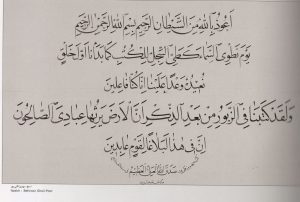 أَعُوذُ بِاللهِ مِنَ الشَّيْطَانِ الرَّجِيمِ بِسْمِ اللهِ الرَّحْمٰنِ الرَّحِيمِ
يَوْمَ نَطْوِي السَّمَاءَ كَطَيِّ السِّجِلِّ لِلْكُتُبِ كَمَا بَدَأْنَا أَوَّلَ خَلْقٍ
نُعِيدُهُ وَعْدًا عَلَيْنَا إِنَّا كُنَّا فَاعِلِينَ
وَلَقَدْ كَتَبْنَا فِي الزَّبُورِ مِنْ بَعْدِ الذِّكْرِ أَنَّ الْأَرْضَ يَرِثُهَا عِبَادِيَ الصَّالِحُونَ
إِنَّ فِي هٰذَا لَبَلَاغًا لِقَوْمٍ عَابِدِينَ
صَدَقَ اللهُ الْعَلِيُّ الْعَظِيمُ
Naskh -